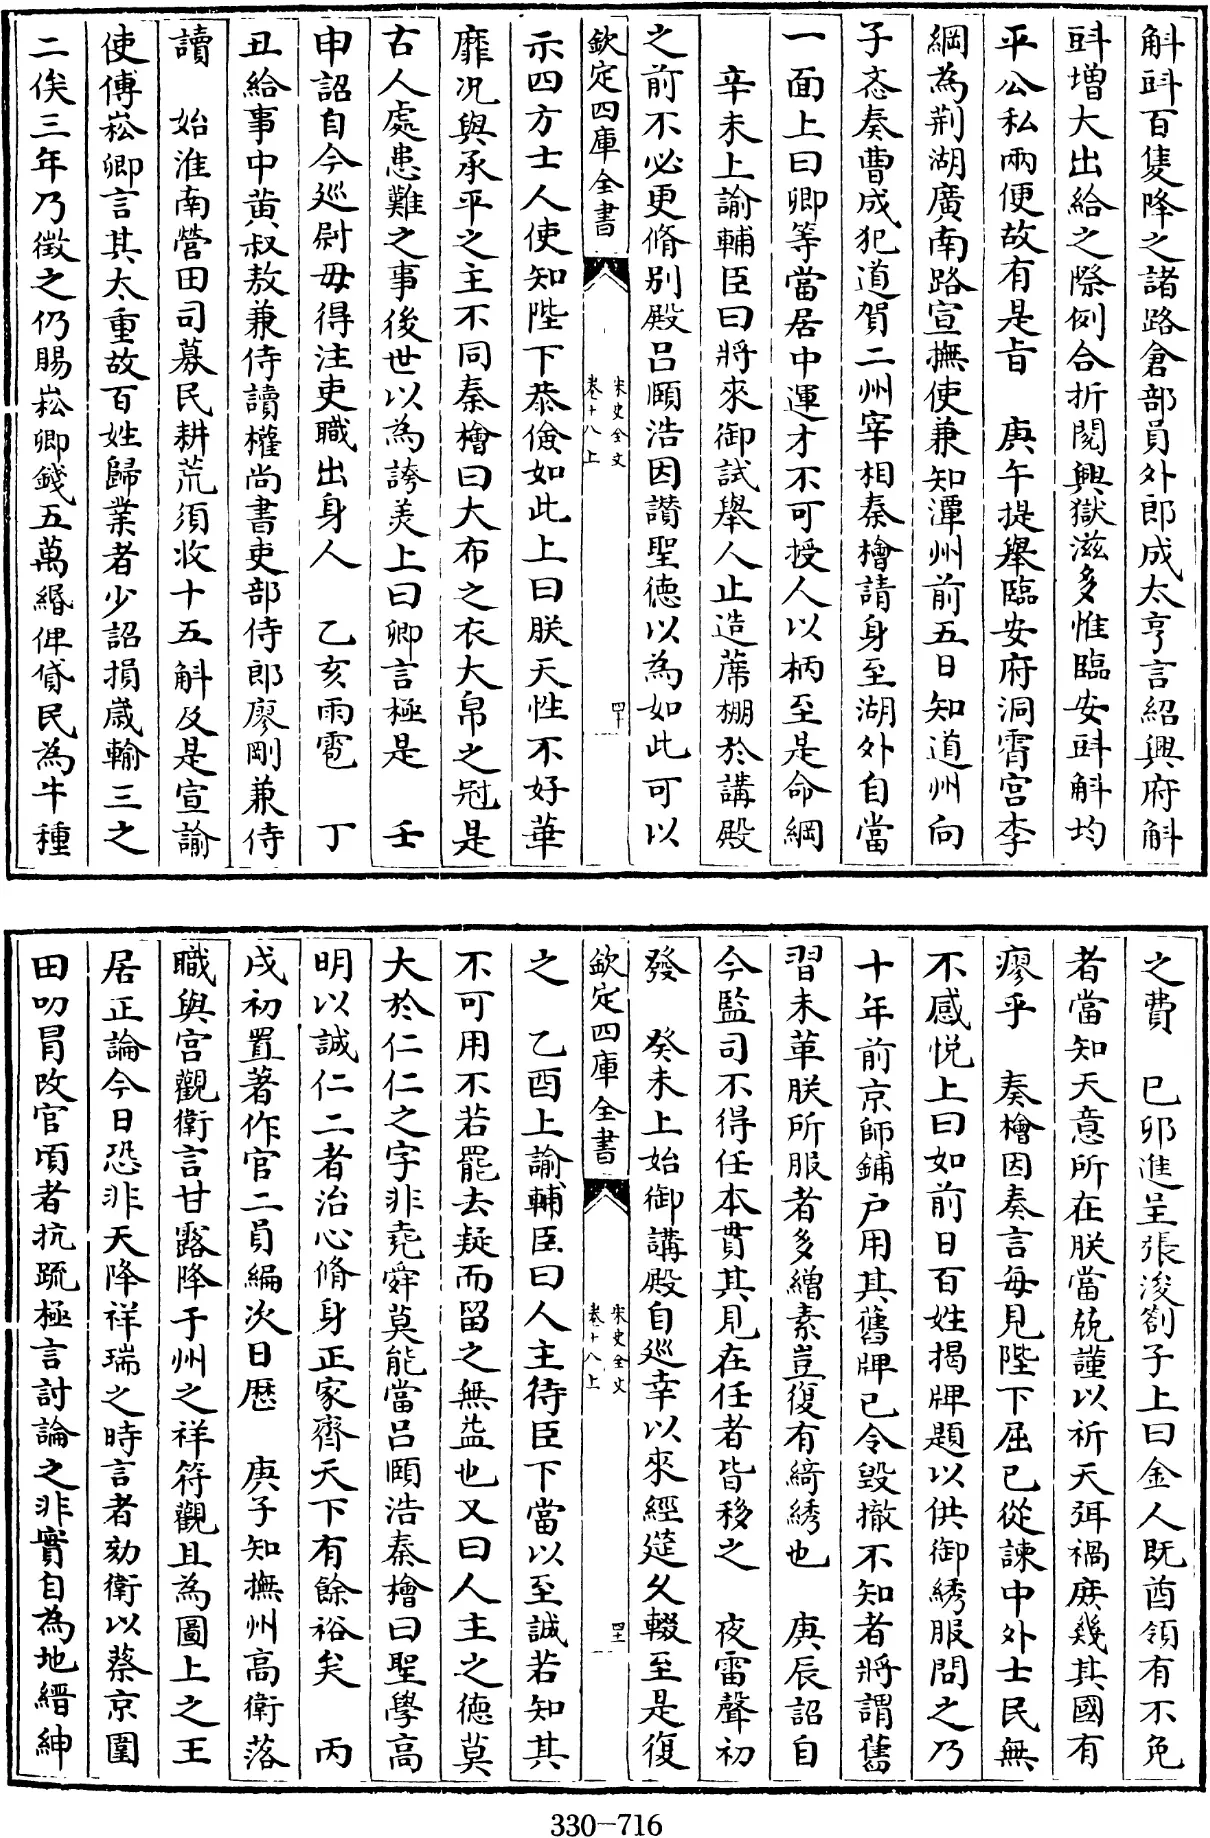 斛㪷百隻降之諸路倉部員外郎成太亨言紹興府斛
㪷增大出給之際例合折閱興獄滋多惟臨安㪷斛均
平公私兩便故有是旨　庚午提舉臨安府洞霄宫李
綱為荆湖廣南路宣撫使兼知潭州前五日知道州向
子忞奏曹成犯道賀二州宰相秦檜請身至湖外自當
一面上曰卿等當居中運才不可授人以柄至是命綱
辛未上諭輔臣曰將來御試舉人止造蓆棚於講殿
之前不必更脩别殿吕頤浩因讃聖德以為如此可以
欽定四庫全書
宋史全文
卷十八上
四十
示四方士人使知陛下恭儉如此上曰朕天性不好華
靡况與承平之主不同秦檜曰大布之衣大帛之冠是
古人處患難之事後世以為誇美上曰卿言極是　壬
申詔自今巡尉毋得注吏職出身人　乙亥雨雹　丁
丑給事中黄叔敖兼侍讀權尚書吏部侍郎廖剛兼侍
讀　始淮南營田司募民耕荒須收十五斛及是宣諭
使傅崧卿言其太重故百姓歸業者少詔損歳輸三之
二俟三年乃徵之仍賜崧卿錢五萬緡俾貸民為牛種
之費　已卯進呈張浚劄子上曰金人既酋領有不免
者當知天意所在朕當兢謹以祈天弭禍庶幾其國有
瘳乎　奏檜因奏言每見陛下屈已從諫中外士民無
不感悦上曰如前日百姓揭牌題以供御綉服問之乃
十年前京師鋪户用其舊牌已令毁撤不知者將謂舊
習未革朕所服者多繒素豈復有綺綉也　庚辰詔自
今監司不得任本貫其見在任者皆移之　夜雷聲初
發　癸未上始御講殿自巡幸以來經筵久輟至是復
欽定四庫全書
宋史全文
卷十八上
四十一
之　乙酉上諭輔臣曰人主待臣下當以至誠若知其
不可用不若罷去疑而留之無益也又曰人主之德莫
大於仁仁之字非堯舜莫能當吕頤浩秦檜曰聖學高
明以誠仁二者治心脩身正家齊天下有餘裕矣　丙
戌初置著作官二員編次日歴　庚子知撫州高衛落
職與宫觀衛言甘露降于州之祥符觀且為圖上之王
居正論今日恐非天降祥瑞之時言者劾衛以蔡京圃
田叨冒改官頃者抗疏極言討論之非實自為地縉紳
330-716